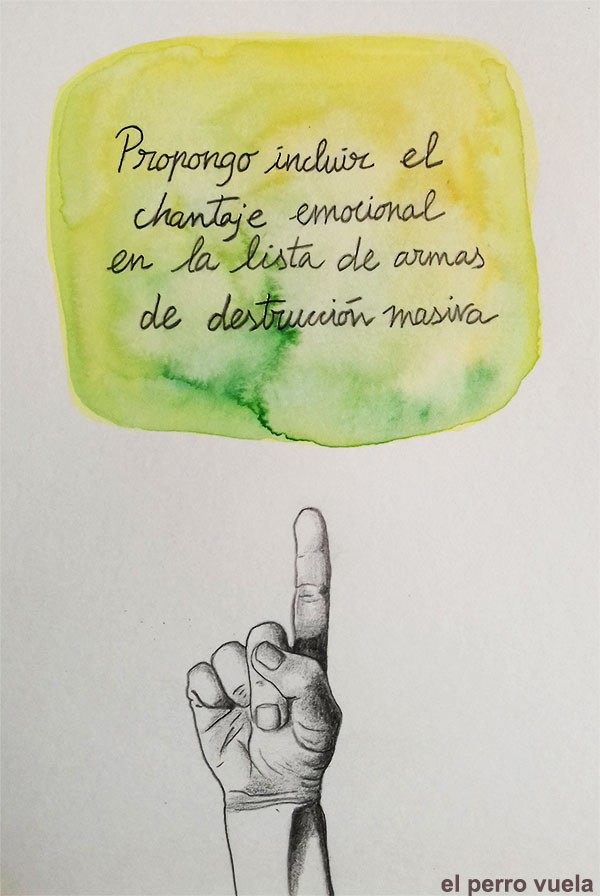 Propongo incluir el
chantaje emocional
en la lista de armas
de destrucción masiva
el perro vuela